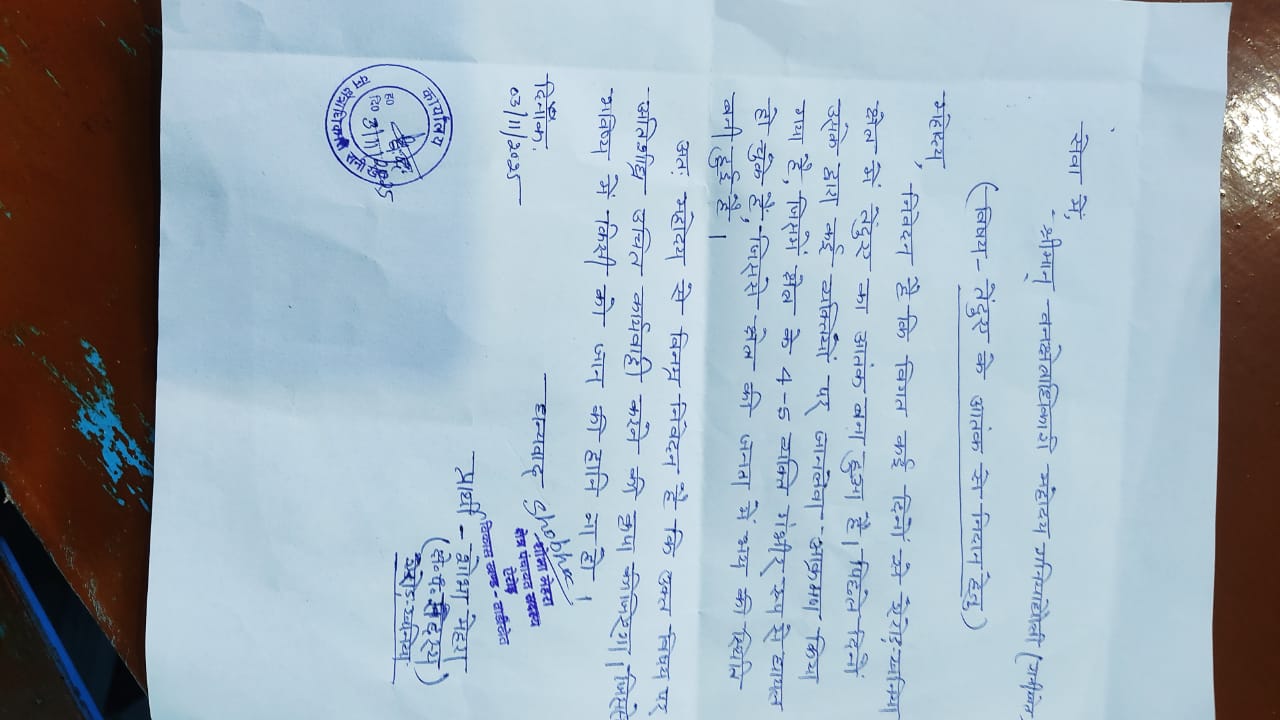 सेवा में,
श्रीमान् वनक्षेत्राधिकारी महोदय
(विषय- तेंदुए के आतंक से निदान हेतु)
महोदय,
निवेदन है कि विगत कई दिनों से
क्षेत्र में तेंदुए का आतंक बना हुआ है। पिछले दिनों
उसके द्वारा कई व्यक्तियों पर जानलेवा आक्रमण किया
गया है, जिसमें क्षेत्र के 4-5 व्यक्ति गंभीर रूप से घायल
हो चुके हैं, जिससे क्षेत्र की जनता में भय की स्थिति
बनी हुई है।
अतः महोदय से विनम्र निवेदन है कि उक्त विषय पर
अतिशीघ्र उचित कार्यवाही करने की कृपा कीजिएगा, जिससे
भविष्य में किसी को जान की हानि ना हो।
दिनांक:
03/11/2025
धन्यवाद
शोभा मेहरा
क्षेत्र पंचायत सदस्य
विकास खण्ड -
प्रार्थी - शोभा मेहरा
कार्यालय